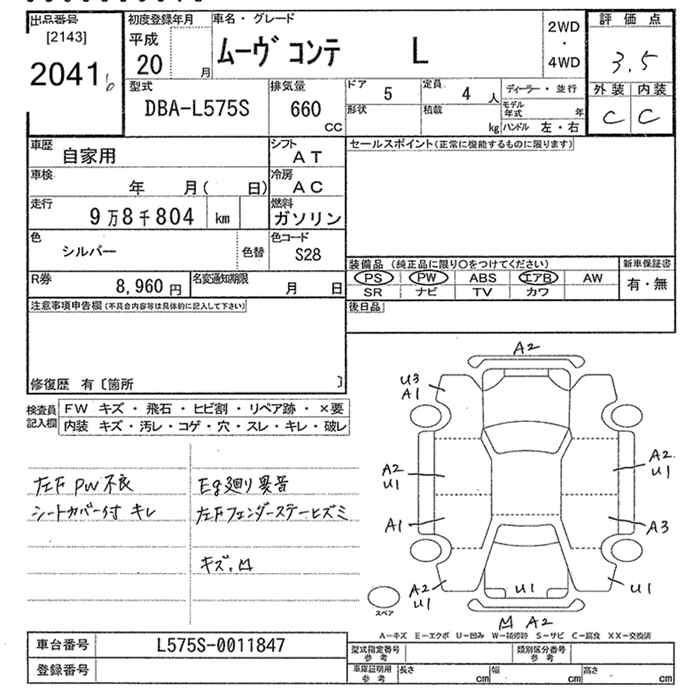 出品番号
[2143]
2041
初度登録年月
平成
20 月
車名・グレード
ムーヴ コンテ L
2WD
・
4WD
評価点
3.5
外装 内装
C C
型式
DBA-L575S
排気量
660
CC
ドア
5
定員
4 人
形状
積載
kg
ディーラー・並行
モデル年式 年
ハンドル 左・右
車歴
自家用
シフト
AT
車検
年 月( 日)
冷房
AC
走行
9万8千804 km
燃料
ガソリン
色
シルバー
色替
色コード
S28
R券
8,960円
名変通知期限
月 日
セールスポイント(正常に機能するものに限ります)
装備品 (純正品に限り○をつけてください)
PS PW ABS エアB AW
SR ナビ TV カワ
新車保証書
有・無
後日品
注意事項申告欄(不具合内容等は具体的に記入して下さい)
修復歴 有〔箇所 〕
検査員
記入欄
FW キズ・飛石・ヒビ割・リペア跡・×要
内装 キズ・汚レ・コゲ・穴・スレ・キレ・破レ
左F PW 不良
シートカバー付 キレ
Eg廻り異音
左Fフェンダーステーヒズミ
キズ、凹
A2
U3
A1
A2
U1
A2
U1
A1
A3
A2
U1
U1
U1
凹 A2
スペア
A―キズ E―エクボ U―凹み W―補修跡 S―サビ C―腐食 XX―交換済
車台番号
L575S-0011847
登録番号
型式指定番号
参考
類別区分番号
参考
車庫証明用
参考
長さ cm
幅 cm
高さ cm